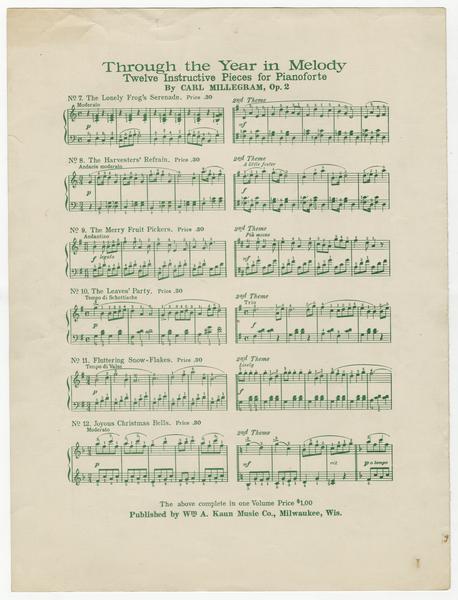 Through the Year in Melody
Twelve Instructive Pieces for Pianoforte
By CARL MILLEGRAM, Op. 2
No 7. The Lonely Frog's Serenade. Price .30
2nd Theme
Moderato
p
mf
No 8. The Harvesters' Refrain. Price .30
2nd Theme
Andante moderato
A little faster
p
f
No 9. The Merry Fruit Pickers. Price .30
2nd Theme
Andantino
Più mosso
f legato
mf
No 10. The Leaves' Party. Price .30
2nd Theme
Tempo di Schottische
Trio
p
f
No 11. Fluttering Snow-Flakes. Price .30
2nd Theme
Tempo di Valse
Lively
p
f
No 12. Joyous Christmas Bells. Price .30
2nd Theme
Moderato
p
mf
rit
p a tempo
The above complete in one Volume Price $1.00
Published by Wm A. Kaun Music Co., Milwaukee, Wis.